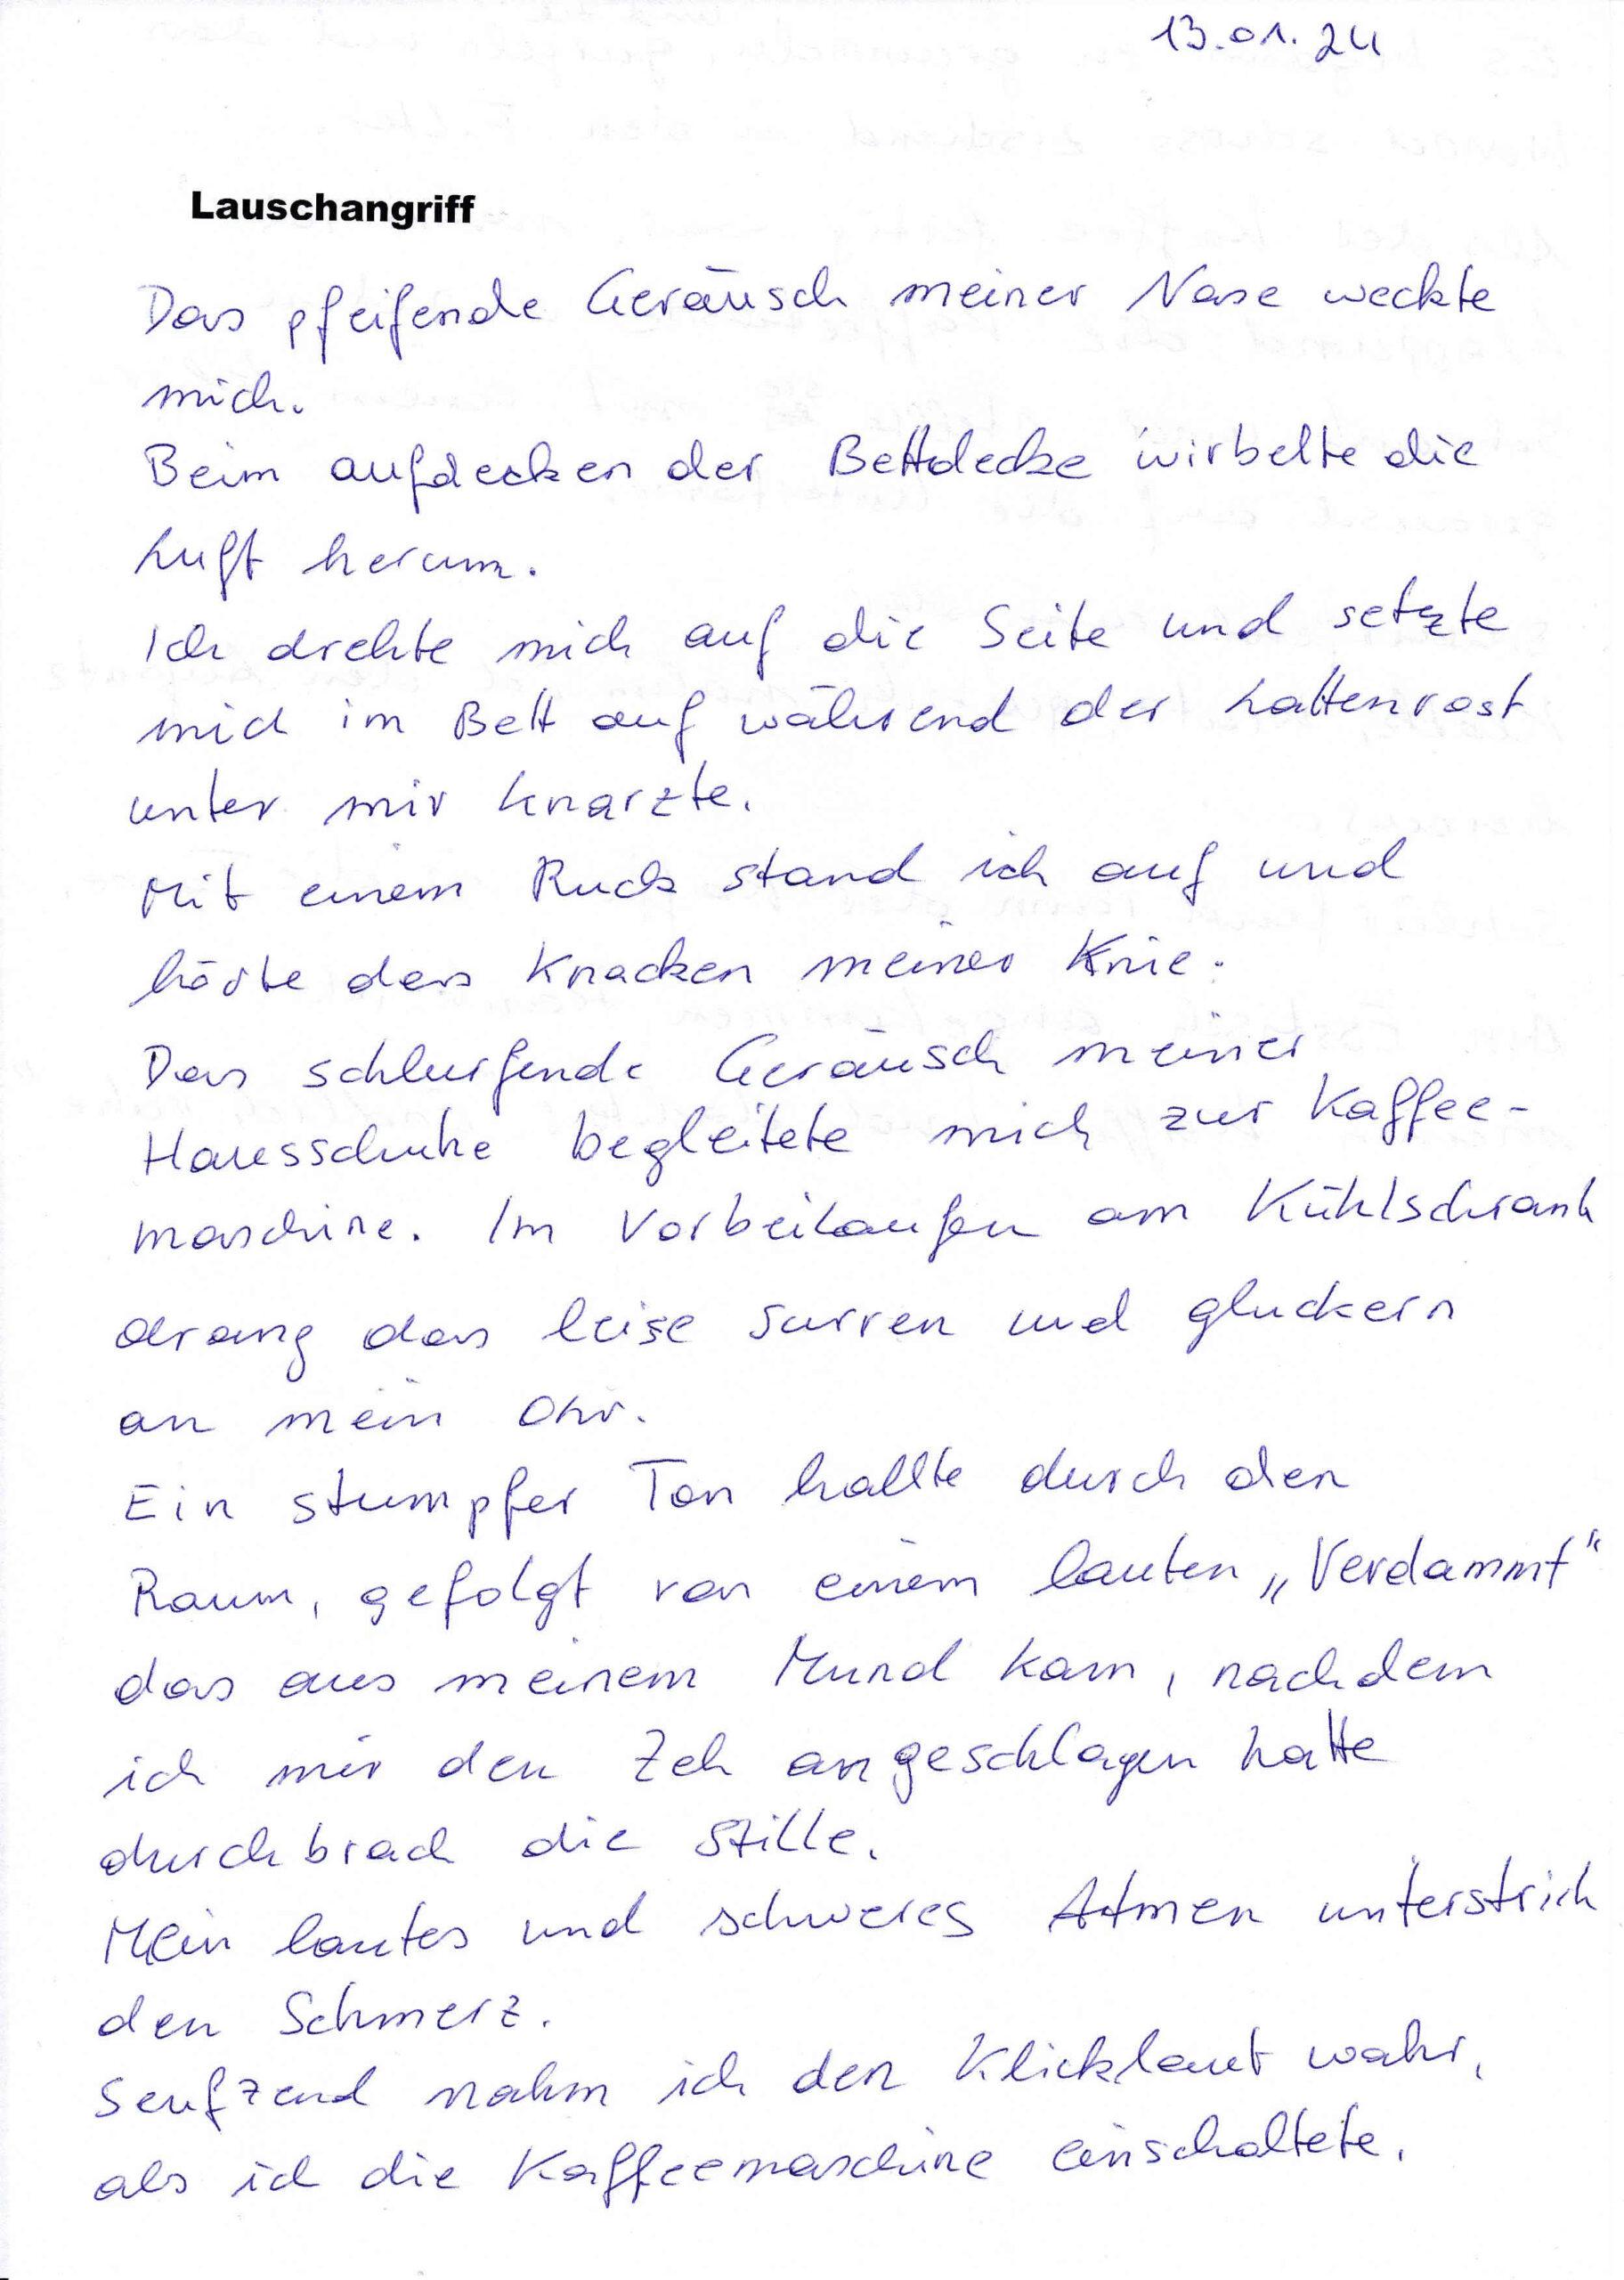 13.01.24
Lauschangriff
Das pfeifende Geräusch meiner Nase weckte
mich.
Beim aufdecken der Bettdecke wirbelte die
Luft herum.
Ich drehte mich auf die Seite und setzte
mich im Bett auf während der Lattenrost
unter mir knarzte.
Mit einem Ruck stand ich auf und
hörte das Knacken meiner Knie.
Das schlurfende Geräusch meiner
Hausschuhe begleitete mich zur Kaffee-
maschine. Im Vorbeilaufen am Kühlschrank
drang das leise surren und gluckern
an mein Ohr.
Ein stumpfer Ton hallte durch den
Raum, gefolgt von einem lauten „Verdammt“
das aus meinem Mund kam, nachdem
ich mir den Zeh angeschlagen hatte
durchbrach die Stille.
Mein lautes und schweres Atmen unterstrich
den Schmerz.
Seufzend nahm ich den Klicklaut wahr,
als ich die Kaffeemaschine einschaltete.